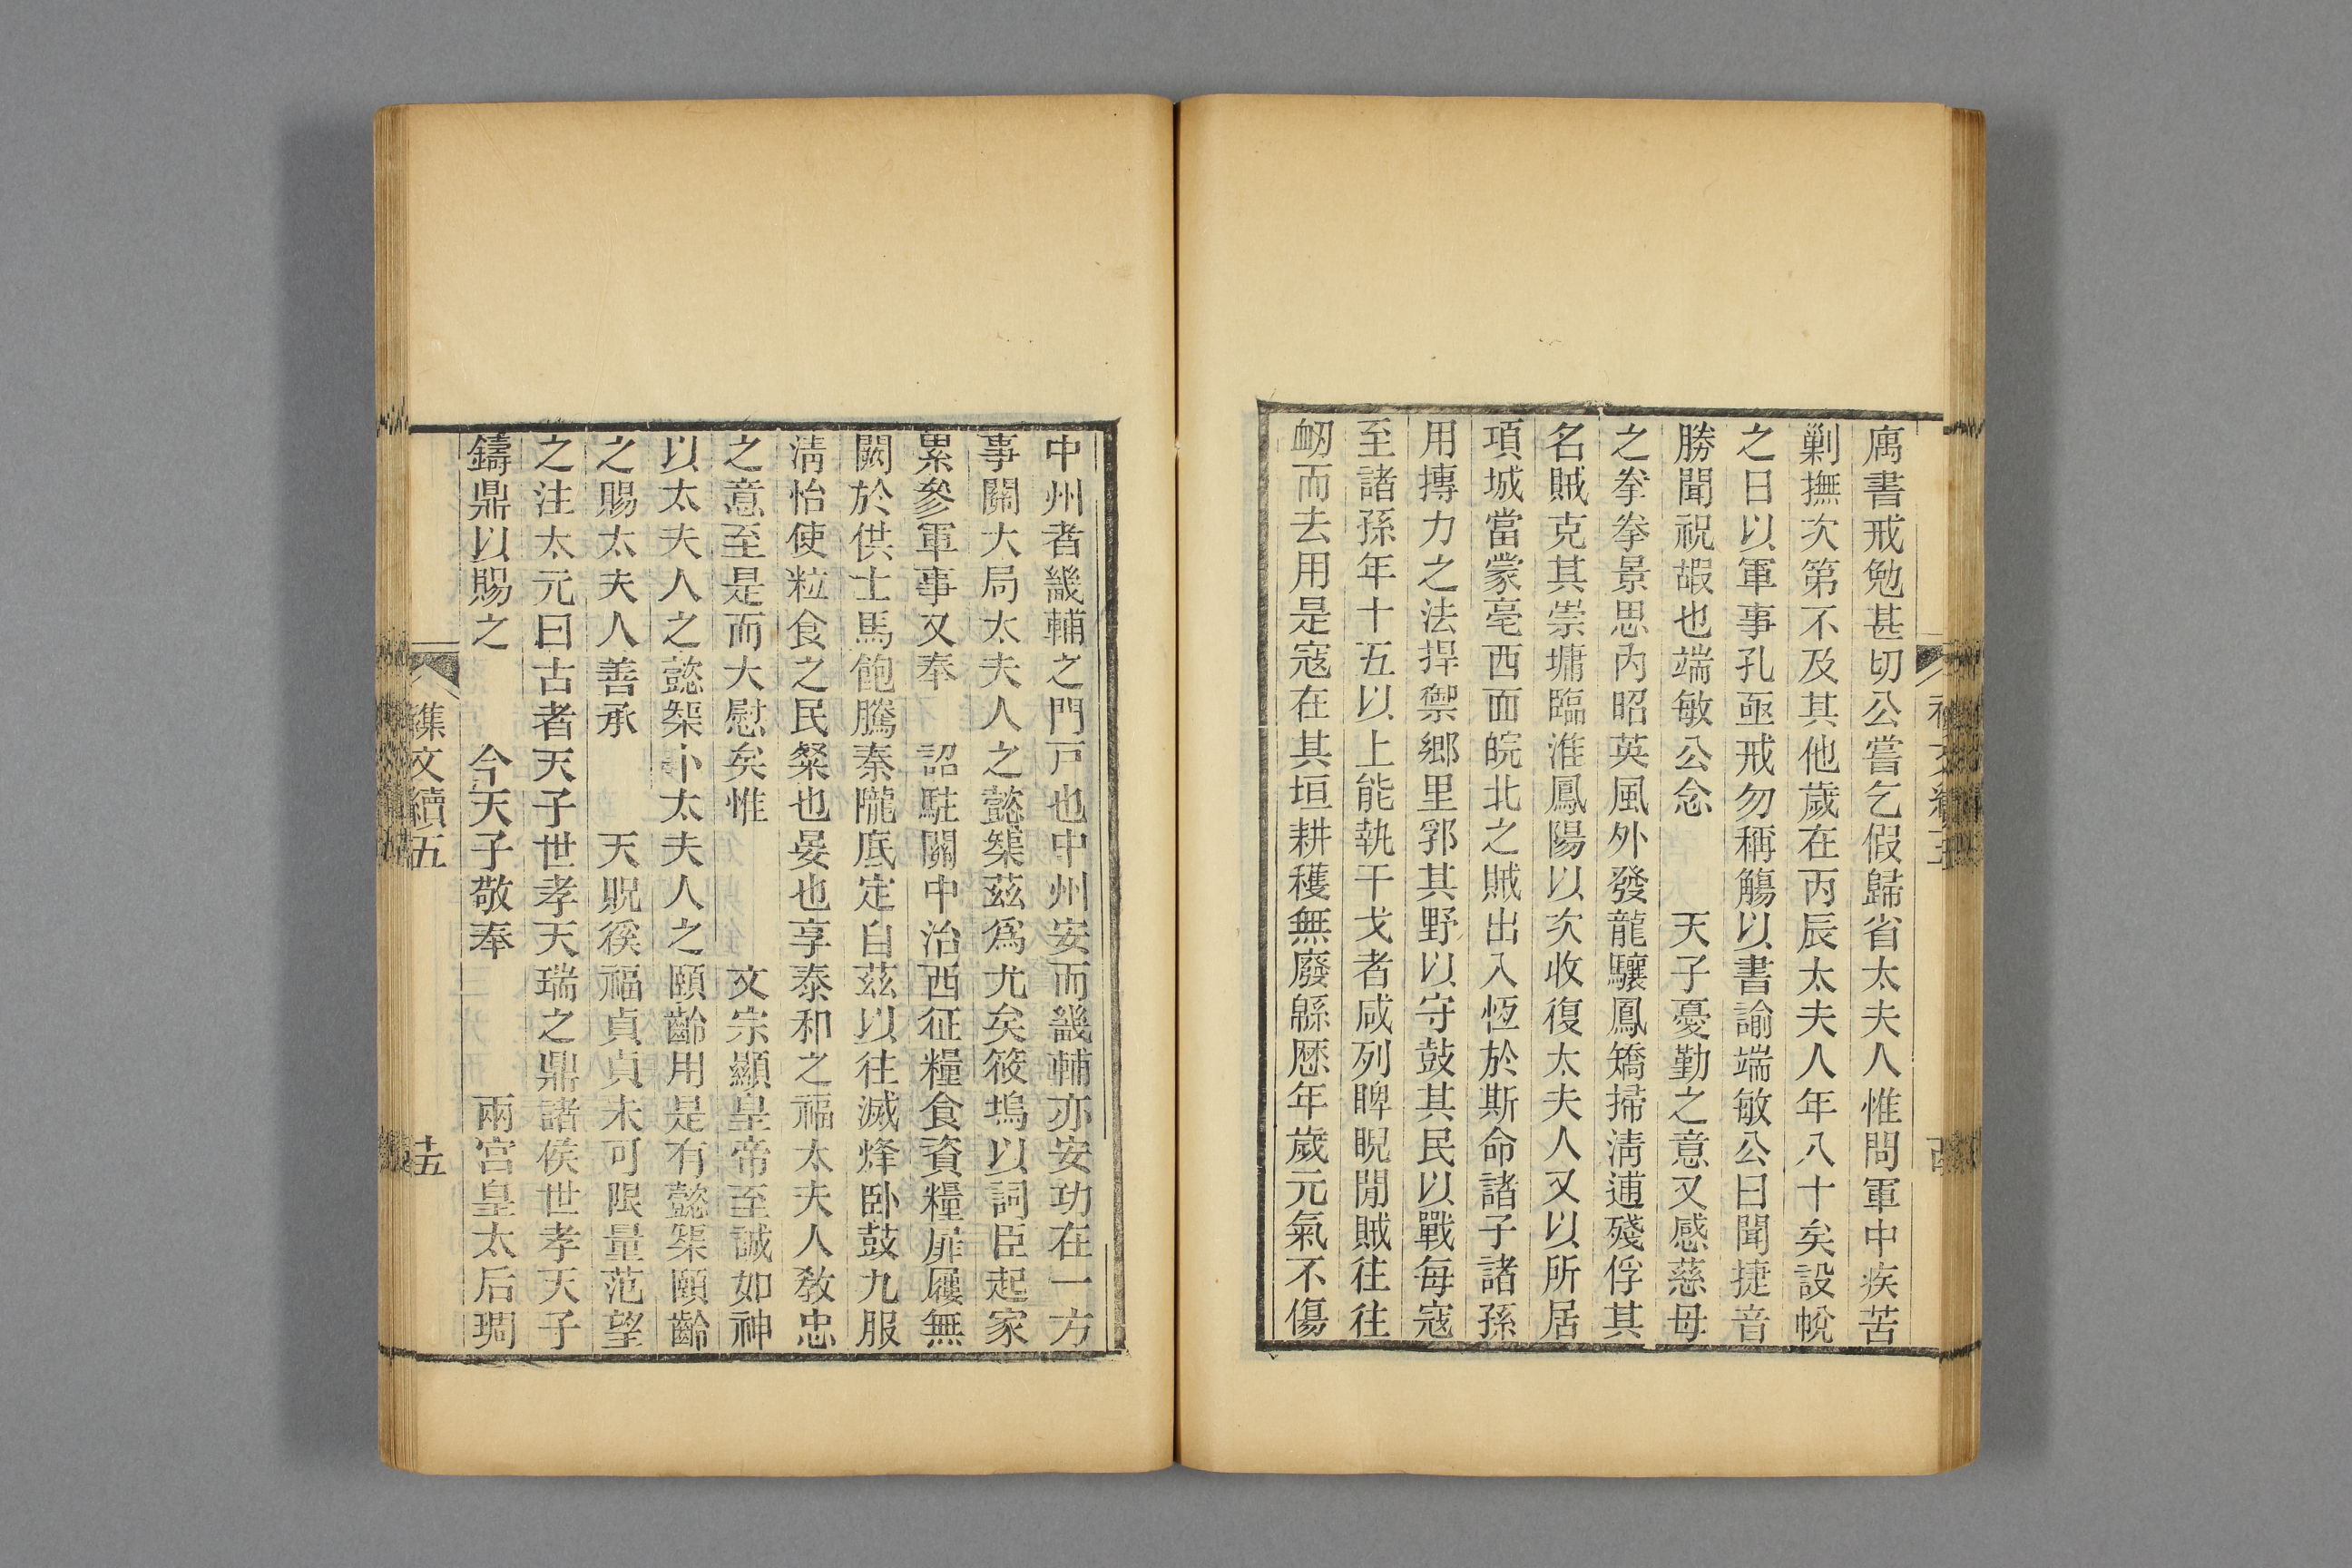 厲書戒勉甚切公嘗乞假歸省太夫人惟問軍中疾苦
剿撫次第不及其他歲在丙辰太夫人年八十矣設帨
之日以軍事孔亟戒勿稱觴以書諭端敏公曰聞捷音
勝聞祝嘏也端敏公念　　天子憂勤之意又感慈母
之拳拳景思內昭英風外發龍驤鳳矯掃淸逋殘俘其
名賊克其崇墉臨淮鳳陽以次收復太夫人又以所居
項城當蒙亳西面皖北之賊出入恆於斯命諸子諸孫
用摶力之法捍禦鄉里郛其野以守鼓其民以戰每寇
至諸孫年十五以上能執干戈者咸列睥睨閒賊往往
衂而去用是寇在其垣耕穫無廢緜歷年歲元氣不傷
中州者畿輔之門戸也中州安而畿輔亦安功在一方
事關大局太夫人之懿榘茲爲尤矣筱塢以詞臣起家
累參軍事又奉　詔駐關中治西征糧食資糧屝屨無
闕於供士馬飽騰秦隴底定自茲以往滅烽卧鼓九服
淸怡使粒食之民粲也晏也享泰和之福太夫人敎忠
之意至是而大慰矣惟　　　文宗顯皇帝至誠如神
以太夫人之懿榘卜太夫人之頤齡用是有懿榘頤齡
之賜太夫人善承　　天貺徯福貞貞未可限量范望
之注太元曰古者天子世孝天瑞之鼎諸侯世孝天子
鑄鼎以賜之　　今天子敬奉　　　兩宮皇太后琱
襍文續五
十五